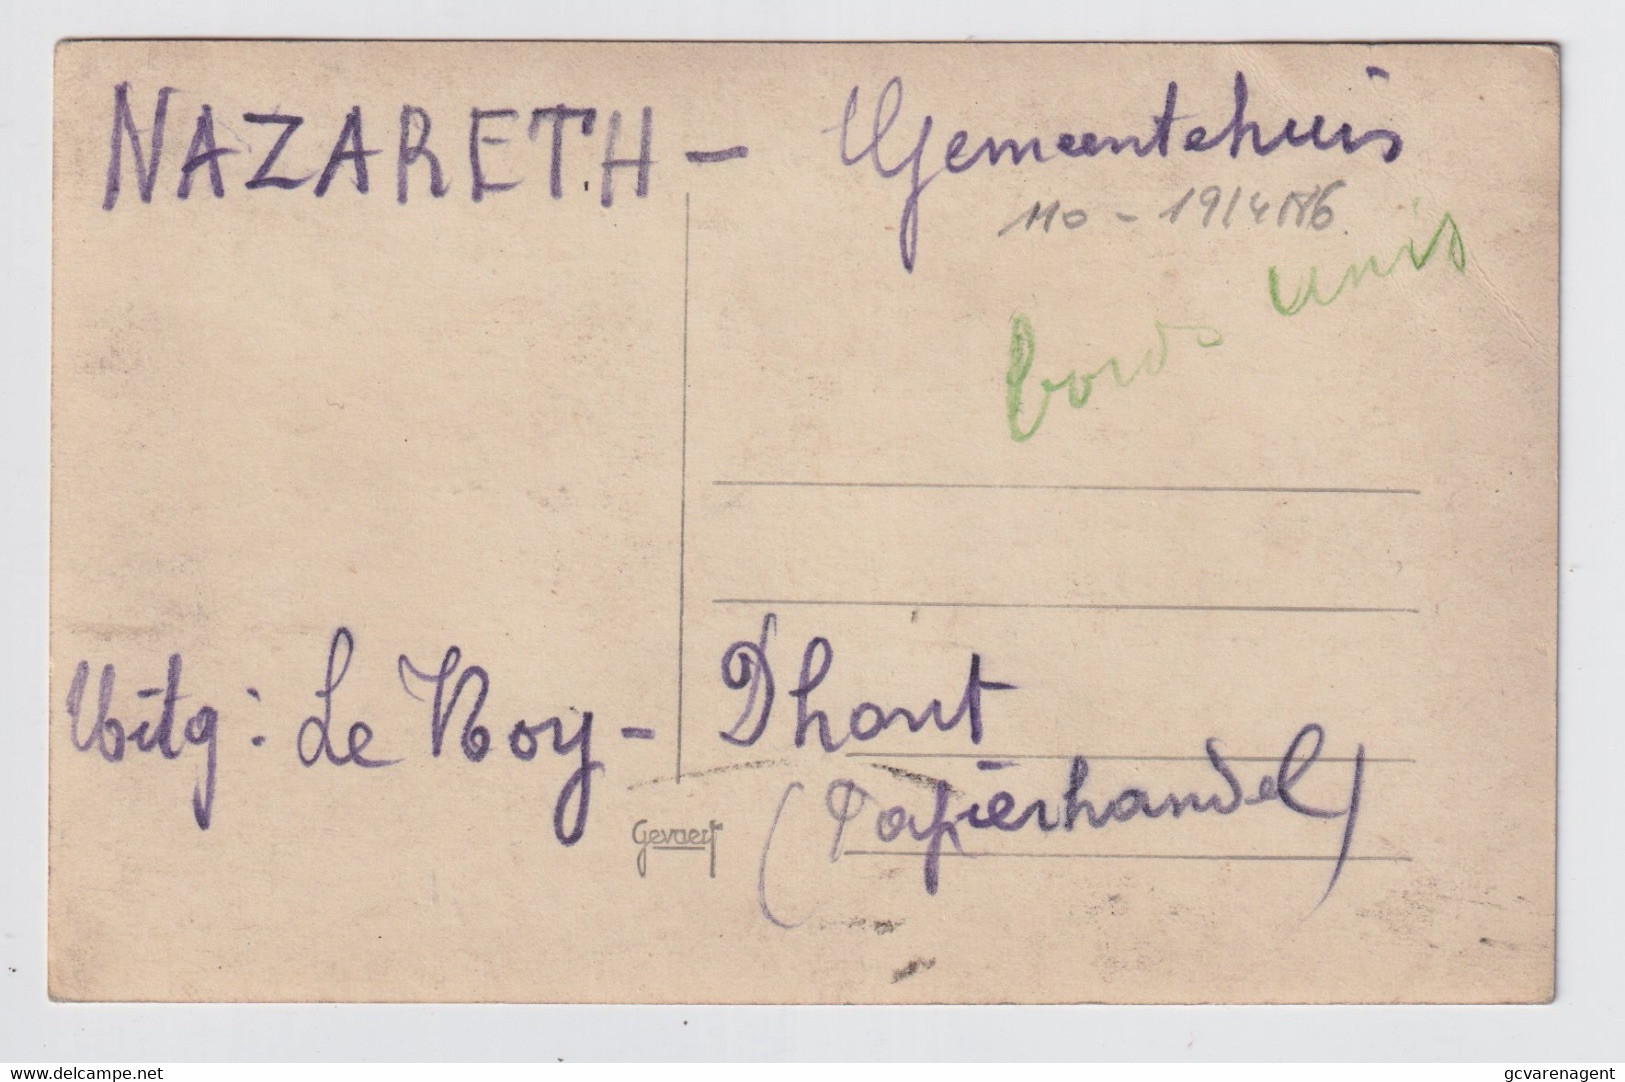 NAZARETH - Gemeentehuis
110 - 19/4
bords unis
Uitg: Le Roy - Dhont
(Papierhandel)
Gevaert
www.delcampe.net
gcvarenagent